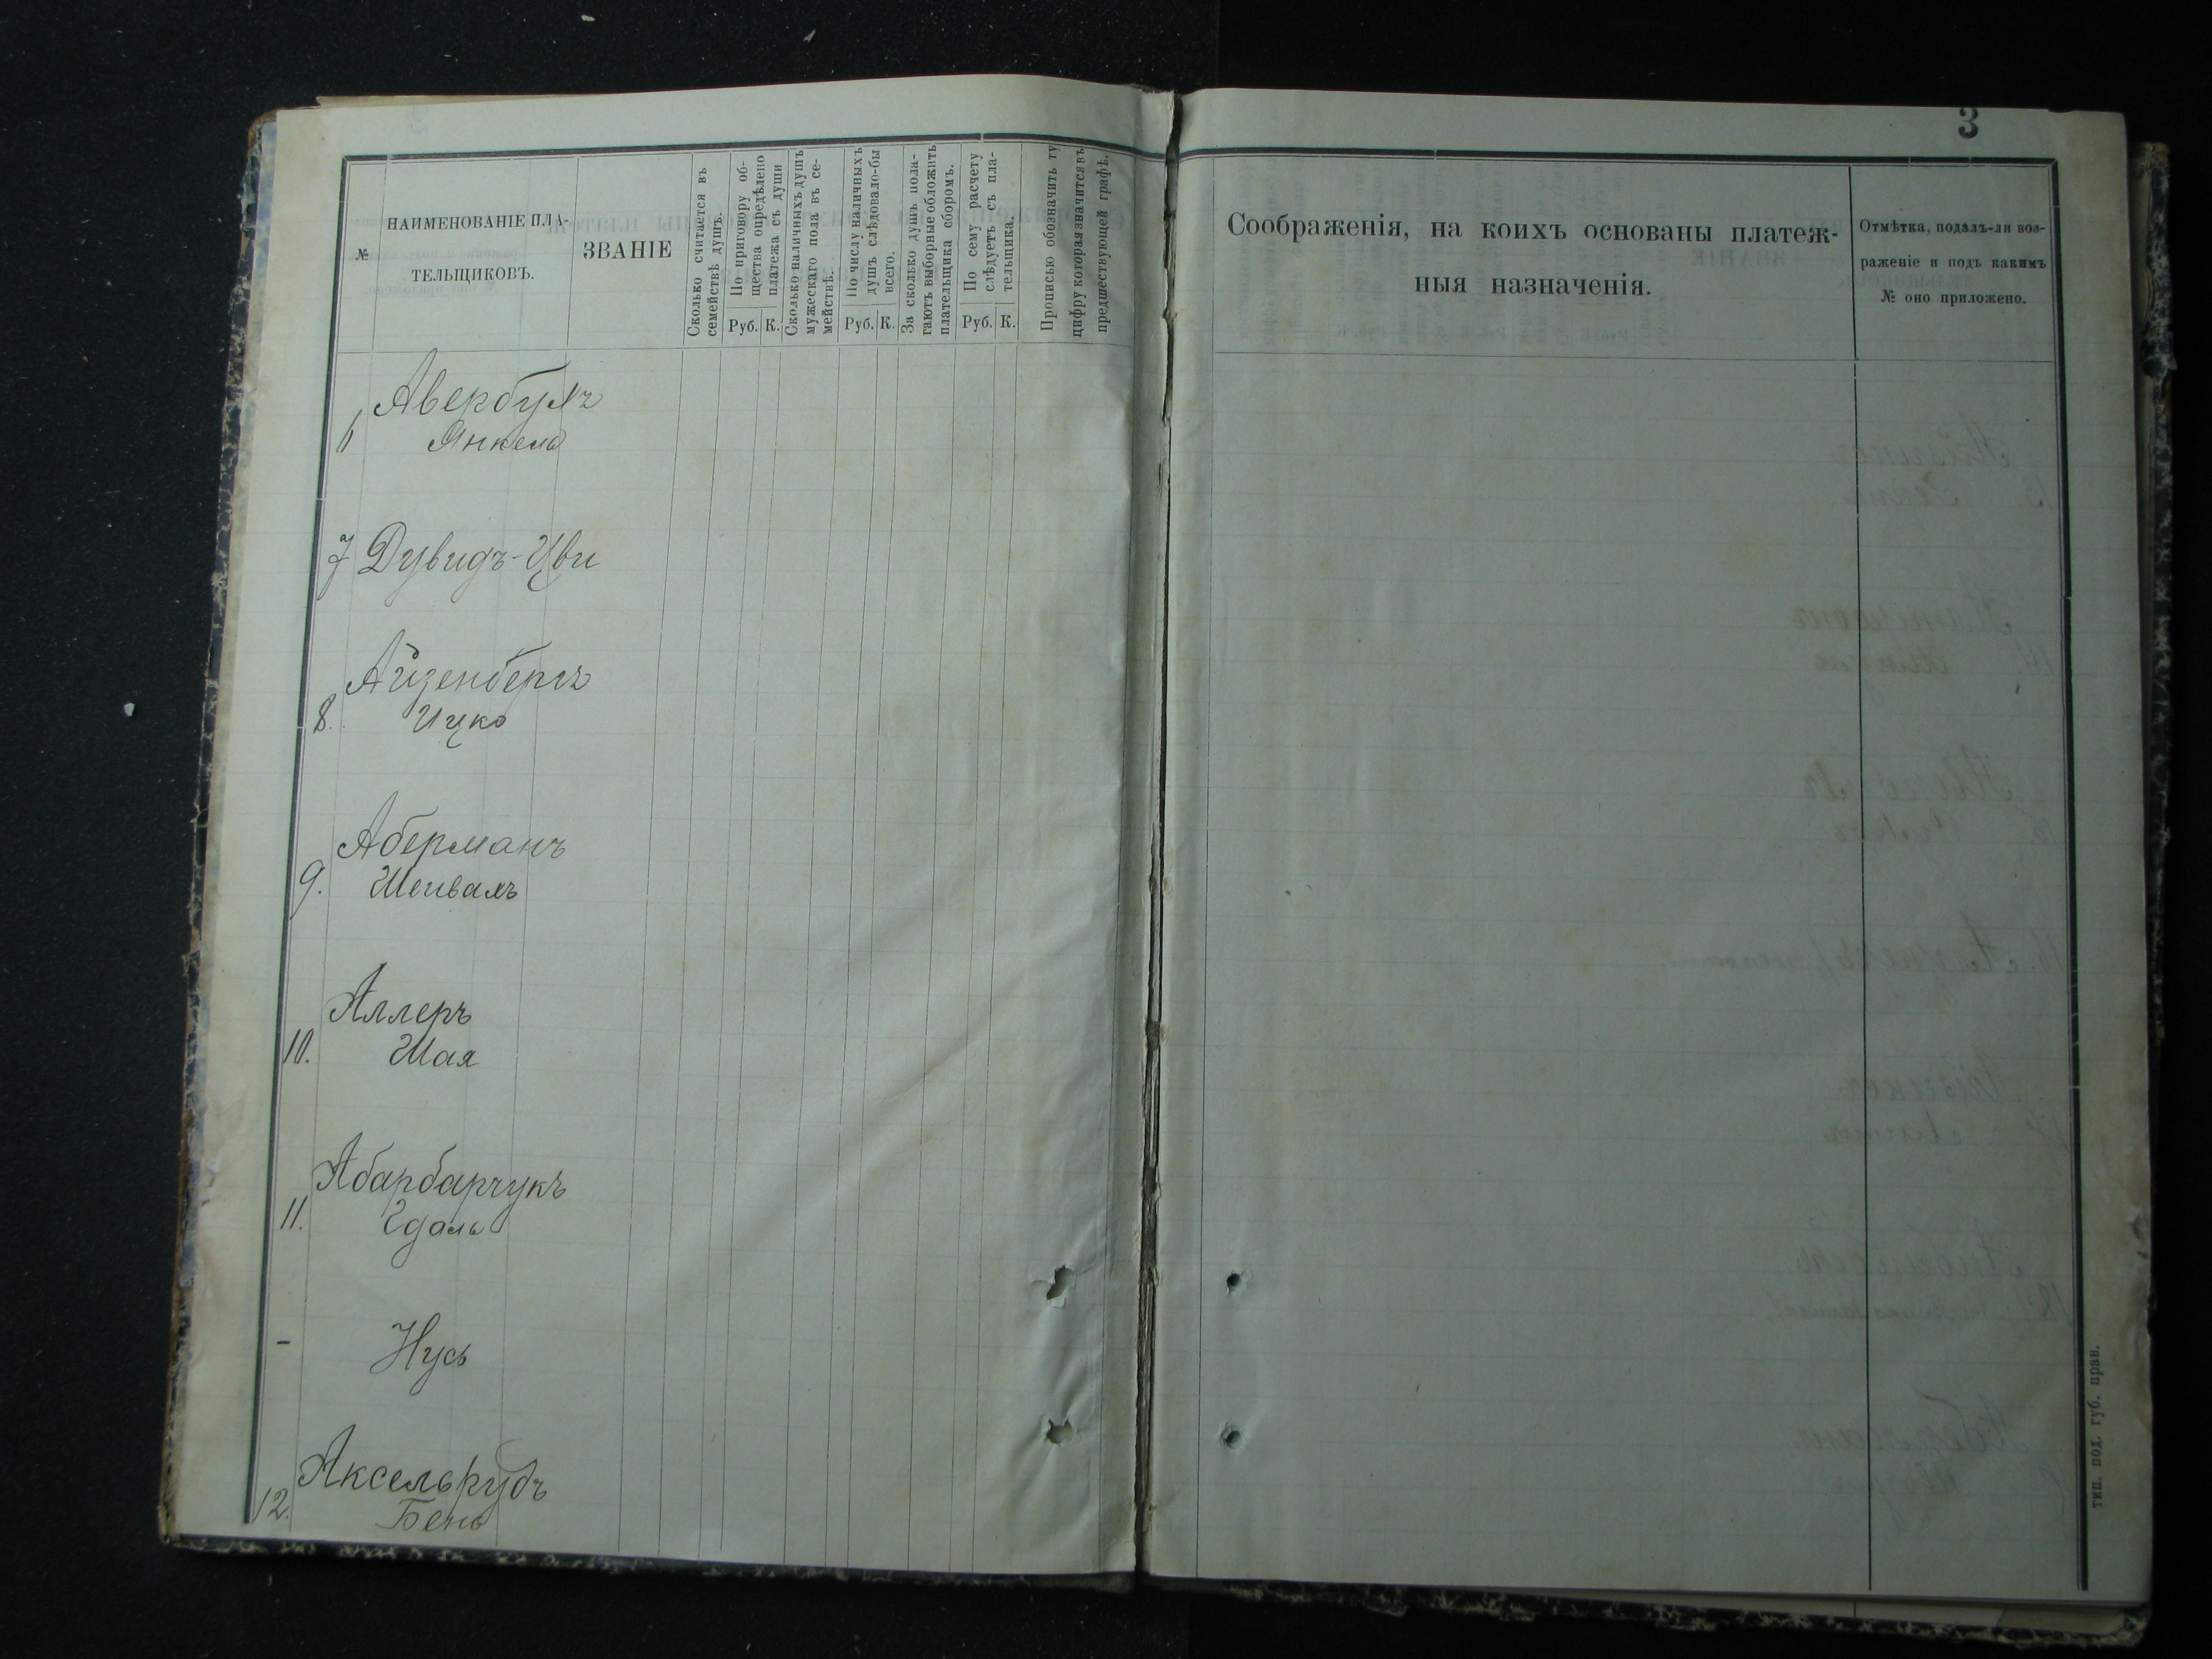 3
№
НАИМЕНОВАНІЕ ПЛА-
ТЕЛЬЩИКОВЪ.
ЗВАНІЕ
Сколько считается въ
семействѣ душъ.
По приговору об-
щества опредѣлено
платежа съ души
Руб. К.
Сколько наличныхъ душъ
мужескаго пола въ се-
мействѣ.
По числу наличныхъ
душъ слѣдовало-бы
всего.
Руб. К.
За сколько душъ пола-
гаютъ выборные обложить
плательщика сборомъ.
По сему расчету
слѣдуетъ съ пла-
тельщика.
Руб. К.
Прописью обозначить ту
цифру которая значится въ
предшествующей графѣ.
Соображенія, на коихъ основаны платеж-
ныя назначенія.
Отмѣтка, подалъ-ли воз-
раженіе и подъ какимъ
№ оно приложено.
Авербухъ
6 Янкель
7 Дувидъ-Цви
Айзенбергъ
8. Ицко
Аберманъ
9.
Аллеръ
10. Шая
Абарбарчукъ
11. Гдаль
- Нусь
Аксельрудъ
12. Бень
тип. под. губ. прав.